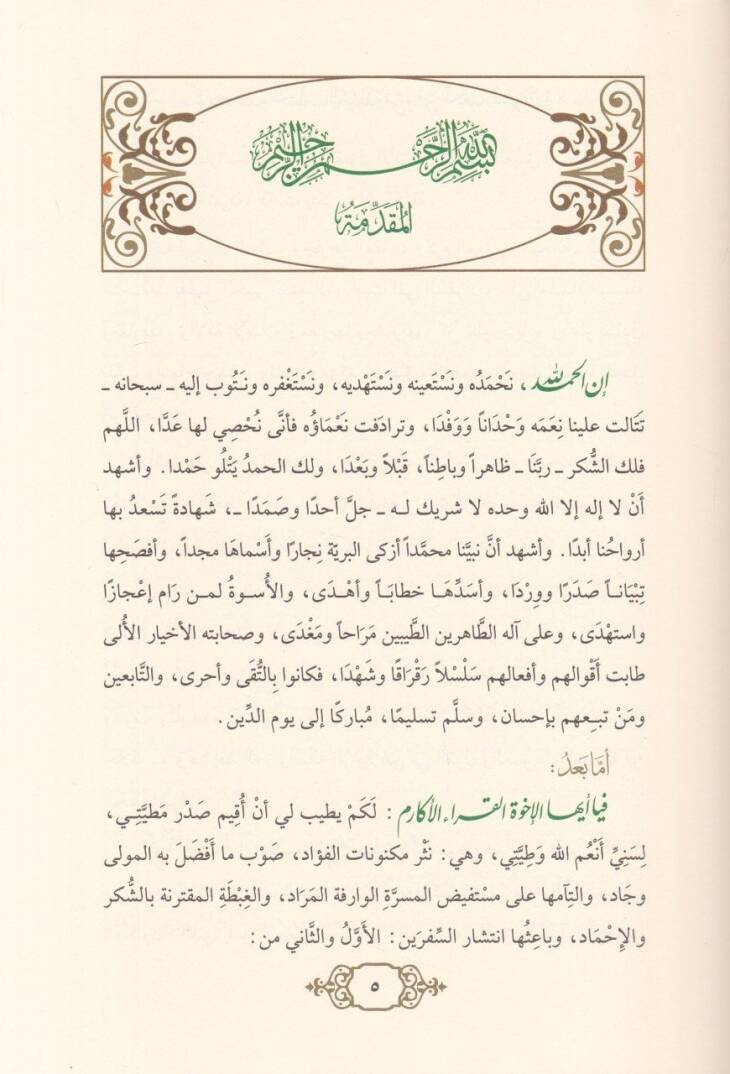 بسم الله الرحمن الرحيم
المُقَدِّمَةُ
إن الحمد لله، نَحْمَدُه ونَسْتَعينه ونَسْتَهْديه، ونَسْتَغْفره ونَتُوب إليه ـ سبحانه ـ
تتَالت علينا نِعَمَه وَحْدَاناً وَوَفْدَا، وترادَفت نَعْمَاؤُه فأنَّى نُحْصِي لها عَدَّا، اللَّهم
فلك الشُّكر ـ ربَّنَا ـ ظاهراً وباطِناً، قَبْلاً وبَعْدَا، ولك الحمدُ يَتْلُو حَمْدا. وأشهد
أَنْ لا إله إلا الله وحده لا شريك له ـ جلَّ أحدًا وصَمَدًا ـ، شَهادةً تَسْعدُ بها
أرواحُنا أبدًا. وأشهد أنَّ نبيَّنا محمَّداً أزكى البريّة نِجارًا وأَسْماهَا مجداً، وأفصَحِها
تِبْيَاناً صَدَرًا ووِرْدَا، وأسَدِّهَا خطابَاً وأهْدَى، والأُسوةُ لمن رَام إعْجازًا
واستهْدَى، وعلى آله الطَّاهرين الطَّيبين مَرَاحاً ومَغْدَى، وصحابته الأخيار الأُلى
طابت أقْوالهم وأفعالهم سَلْسْلاً رَقْرَاقًا وشَهْدَا، فكانوا بِالتُّقَى وأحرى، والتَّابعين
ومَنْ تبِعهم بإحسان، وسلَّم تسليمًا، مُباركًا إلى يوم الدِّين.
أمَّا بَعدُ:
فيا أيها الإخوة القراء الأكارم: لَكَمْ يطيب لي أنْ أُقِيم صَدْر مَطيَّتِي،
لِسَنِيِّ أَنْعُم الله وَطِيَّتِي، وهي: نَثْر مكنونات الفؤاد، صَوْب ما أَفْضَلَ به المولى
وجَاد، والتِآمها على مسْتفيض المسرَّةِ الوارفة المَرَاد، والغِبْطَةِ المقترنة بالشُّكر
والإحْمَاد، وباعِثُها انتشار السِّفرَين: الأَوَّلُ والثَّاني من:
٥